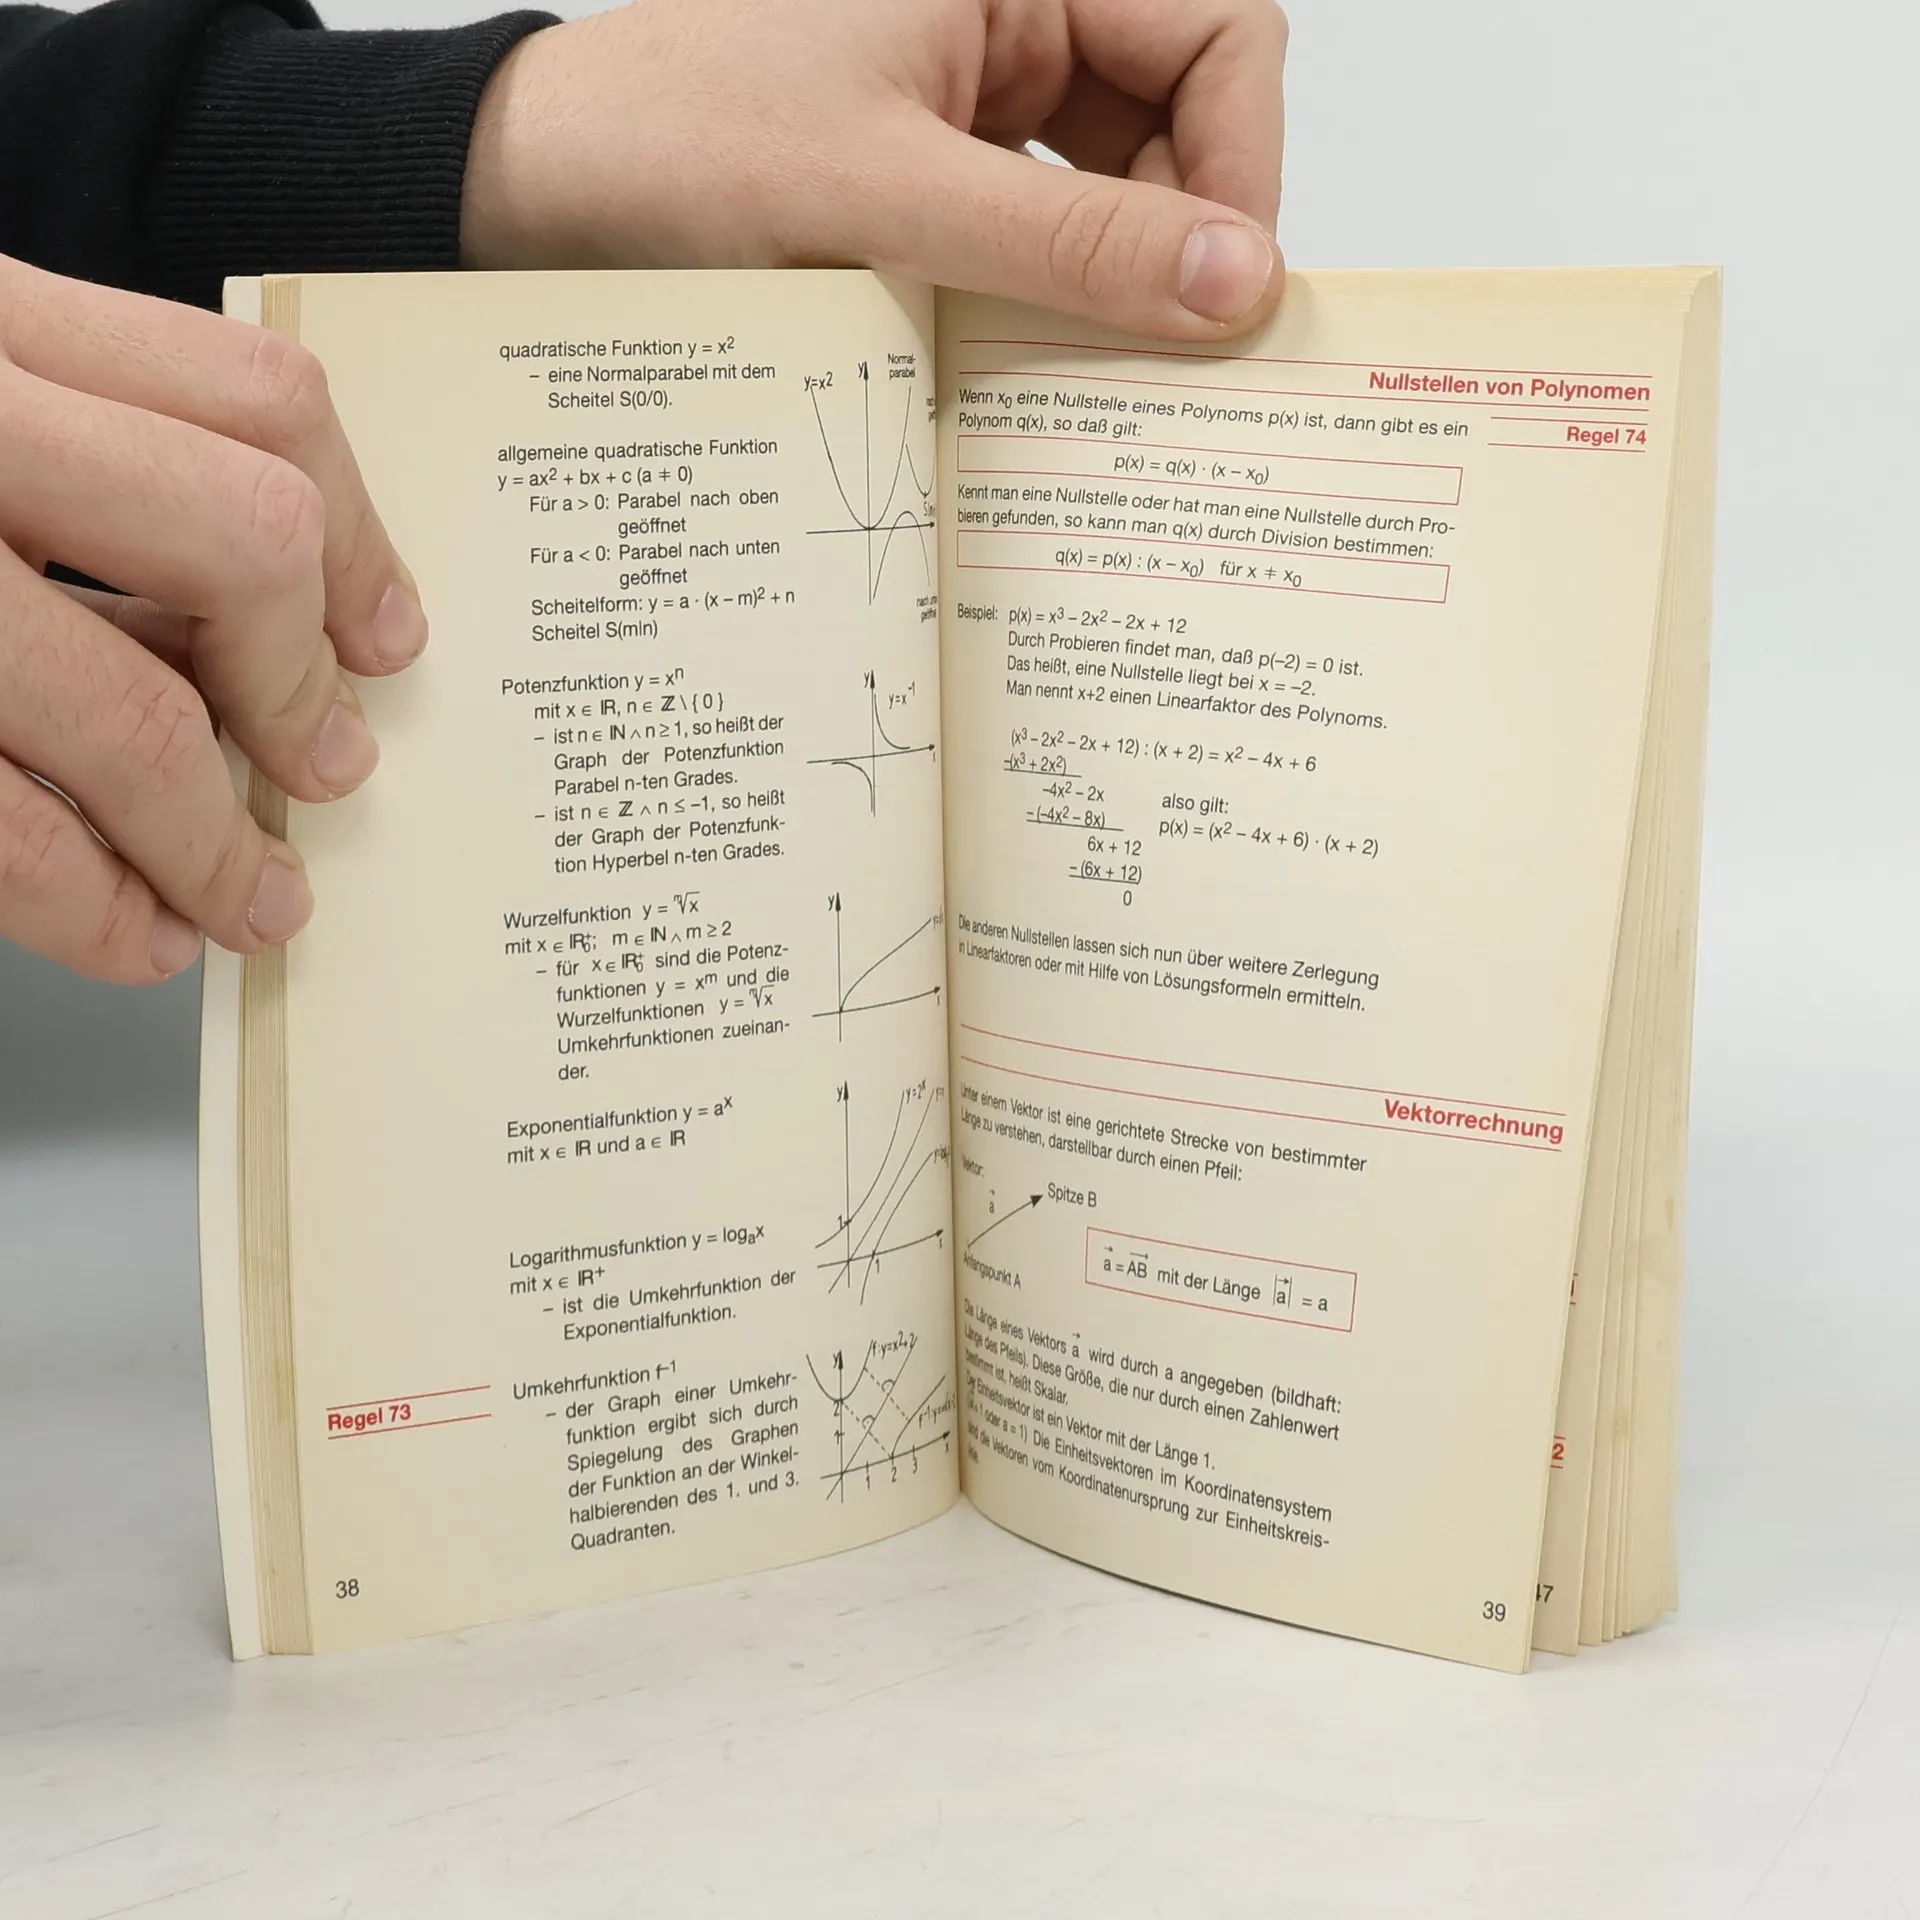 quadratische Funktion y = x²
– eine Normalparabel mit dem
Scheitel S(0/0).
y=x2
y
Normal-
parabel
allgemeine quadratische Funktion
y = ax² + bx + c (a ≠ 0)
Für a > 0: Parabel nach oben
geöffnet
Für a < 0: Parabel nach unten
geöffnet
Scheitelform: y = a · (x – m)² + n
Scheitel S(m|n)
Potenzfunktion y = xⁿ
mit x ∈ ℝ, n ∈ ℤ \ { 0 }
– ist n ∈ ℕ ∧ n ≥ 1, so heißt der
Graph der Potenzfunktion
Parabel n-ten Grades.
– ist n ∈ ℤ ∧ n ≤ –1, so heißt
der Graph der Potenzfunk-
tion Hyperbel n-ten Grades.
y
y=x⁻¹
Wurzelfunktion y = ᵐ√x
mit x ∈ ℝ₀⁺; m ∈ ℕ ∧ m ≥ 2
– für x ∈ ℝ₀⁺ sind die Potenz-
funktionen y = xᵐ und die
Wurzelfunktionen y = ᵐ√x
Umkehrfunktionen zueinan-
der.
y
Exponentialfunktion y = aˣ
mit x ∈ ℝ und a ∈ ℝ
y
y=2ˣ
1
1
Logarithmusfunktion y = logₐx
mit x ∈ ℝ⁺
– ist die Umkehrfunktion der
Exponentialfunktion.
Regel 73
Umkehrfunktion f⁻¹
– der Graph einer Umkehr-
funktion ergibt sich durch
Spiegelung des Graphen
der Funktion an der Winkel-
halbierenden des 1. und 3.
Quadranten.
y
f:y=x²+2
2
1
1 2 3
38
Nullstellen von Polynomen
Regel 74
Wenn x₀ eine Nullstelle eines Polynoms p(x) ist, dann gibt es ein
Polynom q(x), so daß gilt:
p(x) = q(x) · (x – x₀)
Kennt man eine Nullstelle oder hat man eine Nullstelle durch Pro-
bieren gefunden, so kann man q(x) durch Division bestimmen:
q(x) = p(x) : (x – x₀) für x ≠ x₀
Beispiel: p(x) = x³ – 2x² – 2x + 12
Durch Probieren findet man, daß p(–2) = 0 ist.
Das heißt, eine Nullstelle liegt bei x = –2.
Man nennt x+2 einen Linearfaktor des Polynoms.
(x³ – 2x² – 2x + 12) : (x + 2) = x² – 4x + 6
–(x³ + 2x²)
–4x² – 2x
also gilt:
– (–4x² – 8x)
p(x) = (x² – 4x + 6) · (x + 2)
6x + 12
– (6x + 12)
0
Die anderen Nullstellen lassen sich nun über weitere Zerlegung
in Linearfaktoren oder mit Hilfe von Lösungsformeln ermitteln.
Vektorrechnung
Unter einem Vektor ist eine gerichtete Strecke von bestimmter
Länge zu verstehen, darstellbar durch einen Pfeil:
Vektor:
a⃗
Spitze B
Anfangspunkt A
a⃗ = AB⃗ mit der Länge |a⃗| = a
Die Länge eines Vektors a⃗ wird durch a angegeben (bildhaft:
Länge des Pfeils). Diese Größe, die nur durch einen Zahlenwert
bestimmt ist, heißt Skalar.
Der Einheitsvektor ist ein Vektor mit der Länge 1.
oder a = 1) Die Einheitsvektoren im Koordinatensystem
sind die Vektoren vom Koordinatenursprung zur Einheitskreis-
39
2
47